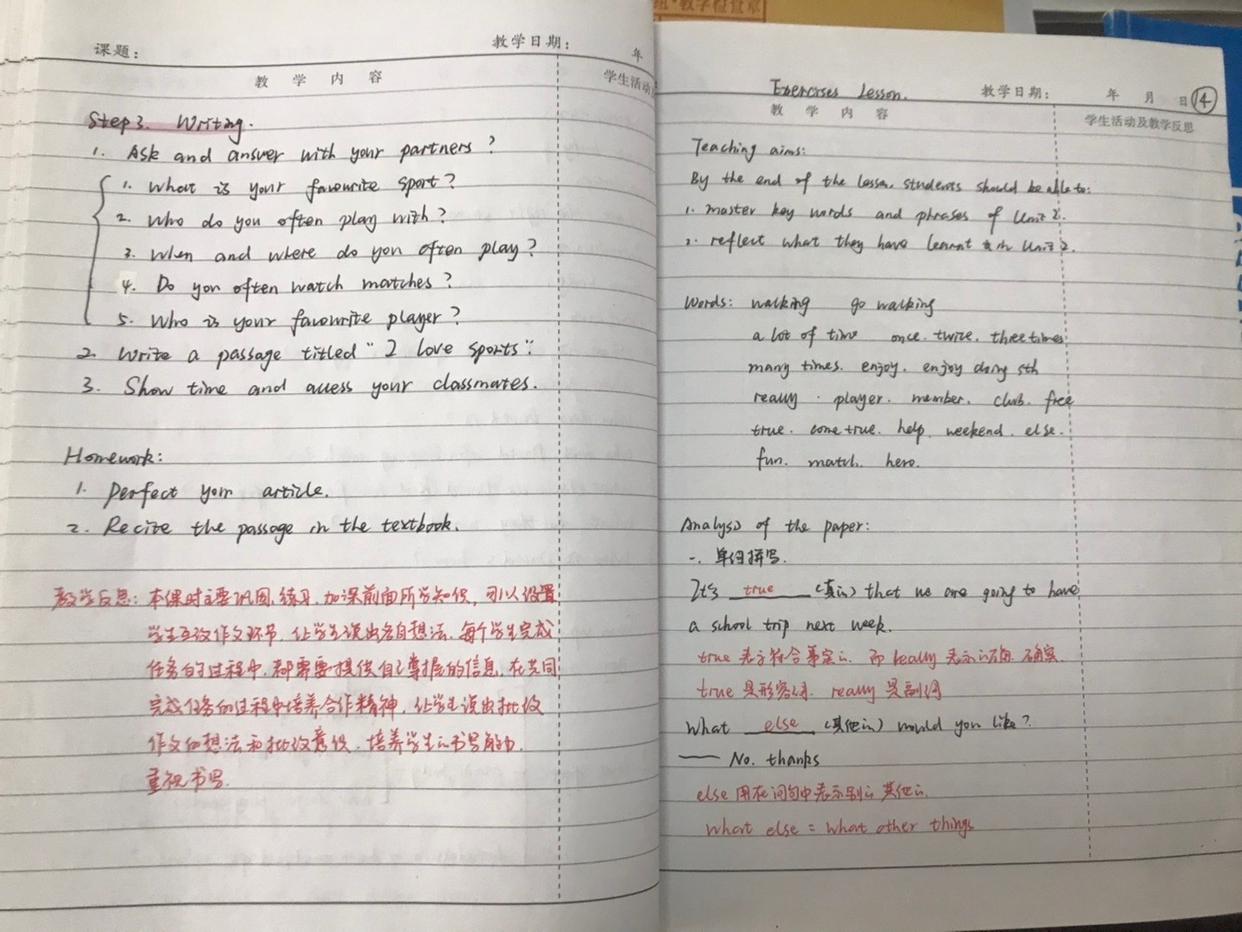 课题：
教学日期：
年
教学内容
学生活动
Step 3. Writing.
1. Ask and answer with your partners?
1. What is your favourite sport?
2. Who do you often play with?
3. When and where do you often play?
4. Do you often watch matches?
5. Who is your favourite player?
2. Write a passage titled "I love sports".
3. Show time and assess your classmates.
Homework:
1. Perfect your article.
2. Recite the passage in the textbook.
教学反思：本课时主要巩固、练习、加深前面所学知识，可以设置
学生互改作文环节，让学生说出各自想法，每个学生完成
任务的过程中，都需要提供自己掌握的信息，在共同
完成任务的过程中培养合作精神，让学生说出批改
作文的想法和批改意识，培养学生的书写能力，
重视书写.
教·教学检查章
Exercises Lesson.
教学日期：
年 月 日 14
教学内容
学生活动及教学反思
Teaching aims:
By the end of the lesson, students should be able to:
1. master key words and phrases of Unit 2.
2. reflect what they have learnt in Unit 2.
Words: walking go walking
a lot of time once. twice. three times
many times. enjoy. enjoy doing sth
really. player. member. club. free
true. come true. help. weekend. else.
fun. match. hero.
Analysis of the paper:
一. 单词拼写.
It's true (真的) that we are going to have
a school trip next week.
true 表示符合事实的. 而 really 表示的确. 确实.
true 是形容词. really 是副词
What else (其他的) would you like?
—— No. thanks
else 用在问句中表示别的 其他的.
What else = what other things